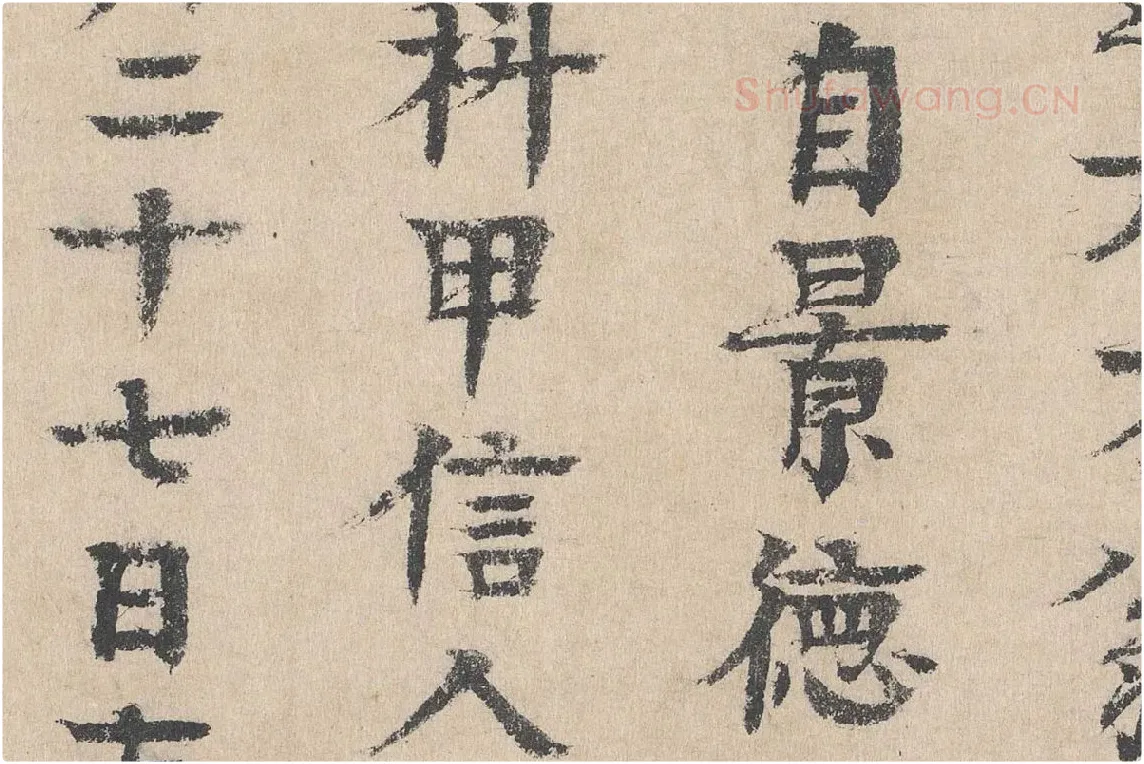 自景德
科甲信人
二十七日
ShufaWang.CN